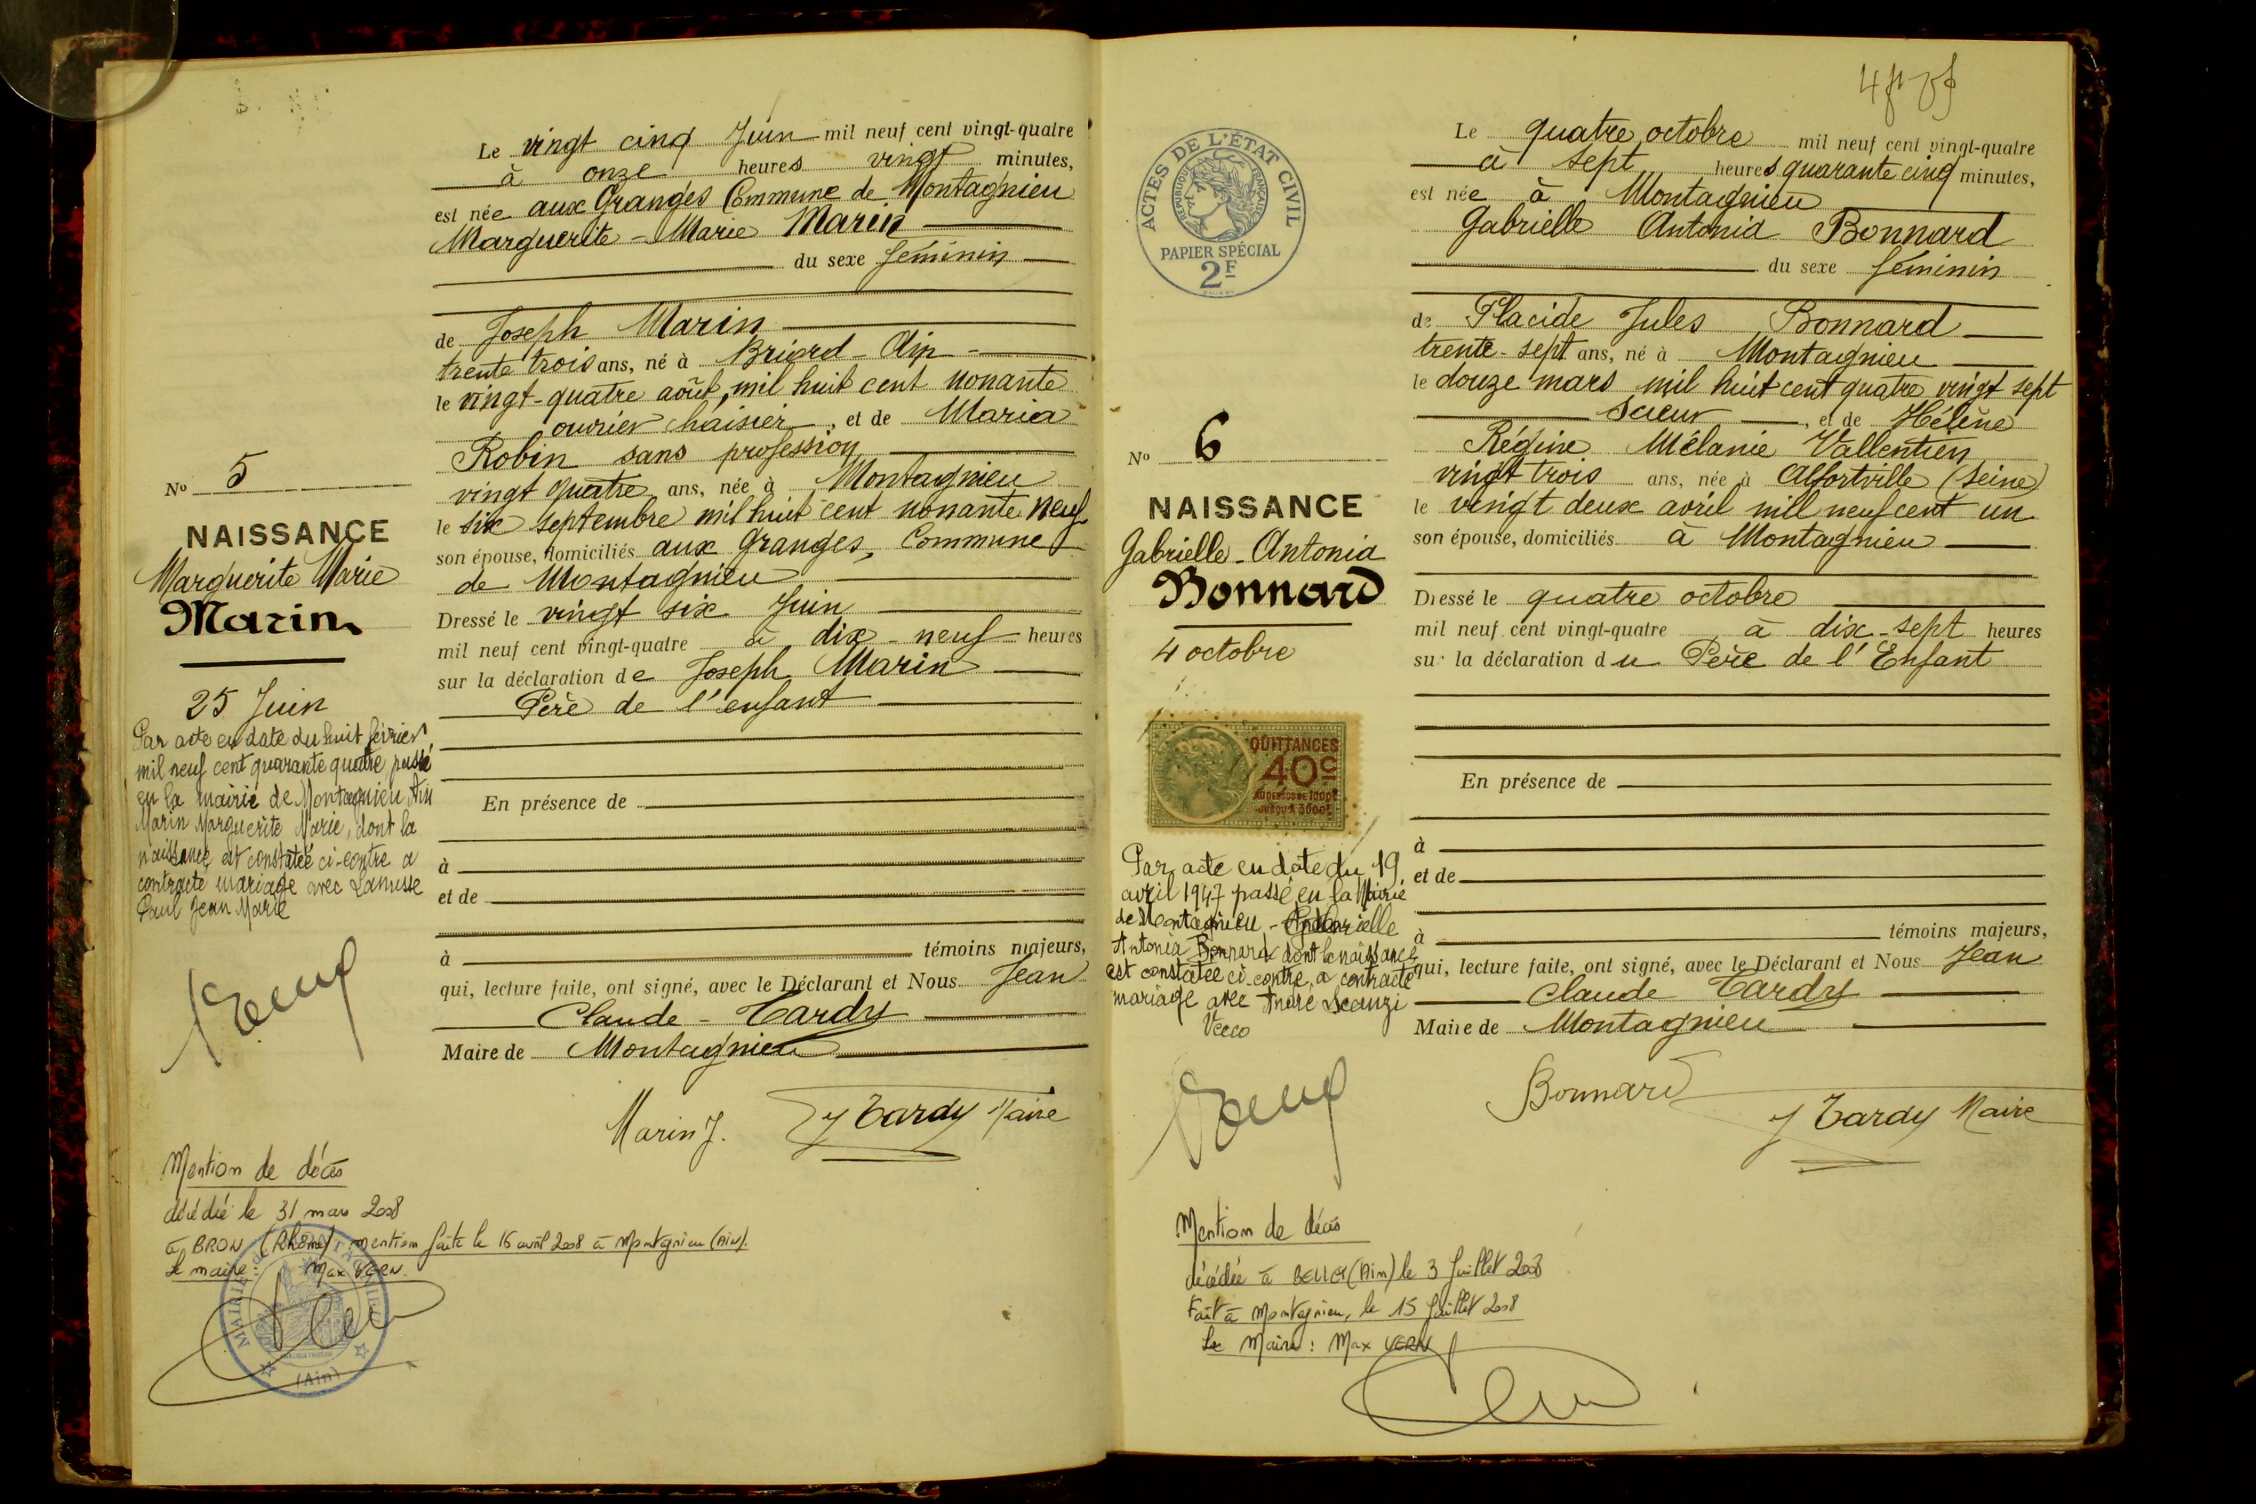 Le vingt cinq Juin mil neuf cent vingt-quatre
à onze heures vingt minutes,
est née aux Granges Commune de Montagnieu
Marguerite - Marie Marin
du sexe féminin
de Joseph Marin
trente trois ans, né à Briord - Ain -
le vingt-quatre août, mil huit cent nonante
ouvrier chaisier, et de Maria
Robin sans profession
vingt quatre ans, née à Montagnieu
le six septembre mil huit cent nonante neuf
son épouse, domiciliés aux Granges, Commune
de Montagnieu
Dressé le vingt six Juin
mil neuf cent vingt-quatre à dix-neuf heures
sur la déclaration de Joseph Marin
Père de l'enfant
En présence de
à
et de
à témoins majeurs,
qui, lecture faite, ont signé, avec le Déclarant et Nous Jean
Claude - Tardy
Maire de Montagnieu
Marin J. J Tardy Maire
No 5
NAISSANCE
Marguerite Marie
Marin
25 Juin
Par acte en date du huit février
mil neuf cent quarante quatre passé
en la mairie de Montagnieu, Ain
Marin Marguerite Marie, dont la
naissance est constatée ci-contre a
contracté mariage avec
Paul Jean Marie
Mention de décès
décédée le 31 mars 2008
à BRON (Rhône) mention faite le 16 avril 2008 à Montagnieu (Ain).
Le maire: Max VERN.
MAIRIE
(Ain)
Le quatre octobre mil neuf cent vingt-quatre
à sept heures quarante cinq minutes,
est née à Montagnieu
Gabrielle Antonia Bonnard
du sexe féminin
de Placide Jules Bonnard
trente-sept ans, né à Montagnieu
le douze mars mil huit cent quatre vingt sept
scieur, et de Hélène
Régine Mélanie Vallentien
vingt trois ans, née à Alfortville (Seine)
le vingt deux avril mill neuf cent un
son épouse, domiciliés à Montagnieu
Dressé le quatre octobre
mil neuf cent vingt-quatre à dix-sept heures
sur la déclaration du Père de l'Enfant
En présence de
à
et de
à témoins majeurs,
qui, lecture faite, ont signé, avec le Déclarant et Nous Jean
Claude Tardy
Maire de Montagnieu
Bonnard J Tardy Maire
ACTES DE L'ÉTAT CIVIL
RÉPUBLIQUE FRANÇAISE
PAPIER SPÉCIAL
2F
No 6
NAISSANCE
Gabrielle - Antonia
Bonnard
4 octobre
QUITTANCES
40c
Par acte en date du 19
avril 1947 passé en la Mairie
de Montagnieu - Gabrielle
Antonia Bonnard dont la naissance
est constatée ci-contre, a contracté
mariage avec André
Mention de décès
décédée à BELLEY (Ain) le 3 Juillet 2008
Fait à Montagnieu, le 15 Juillet 2008
Le Maire: Max VERN